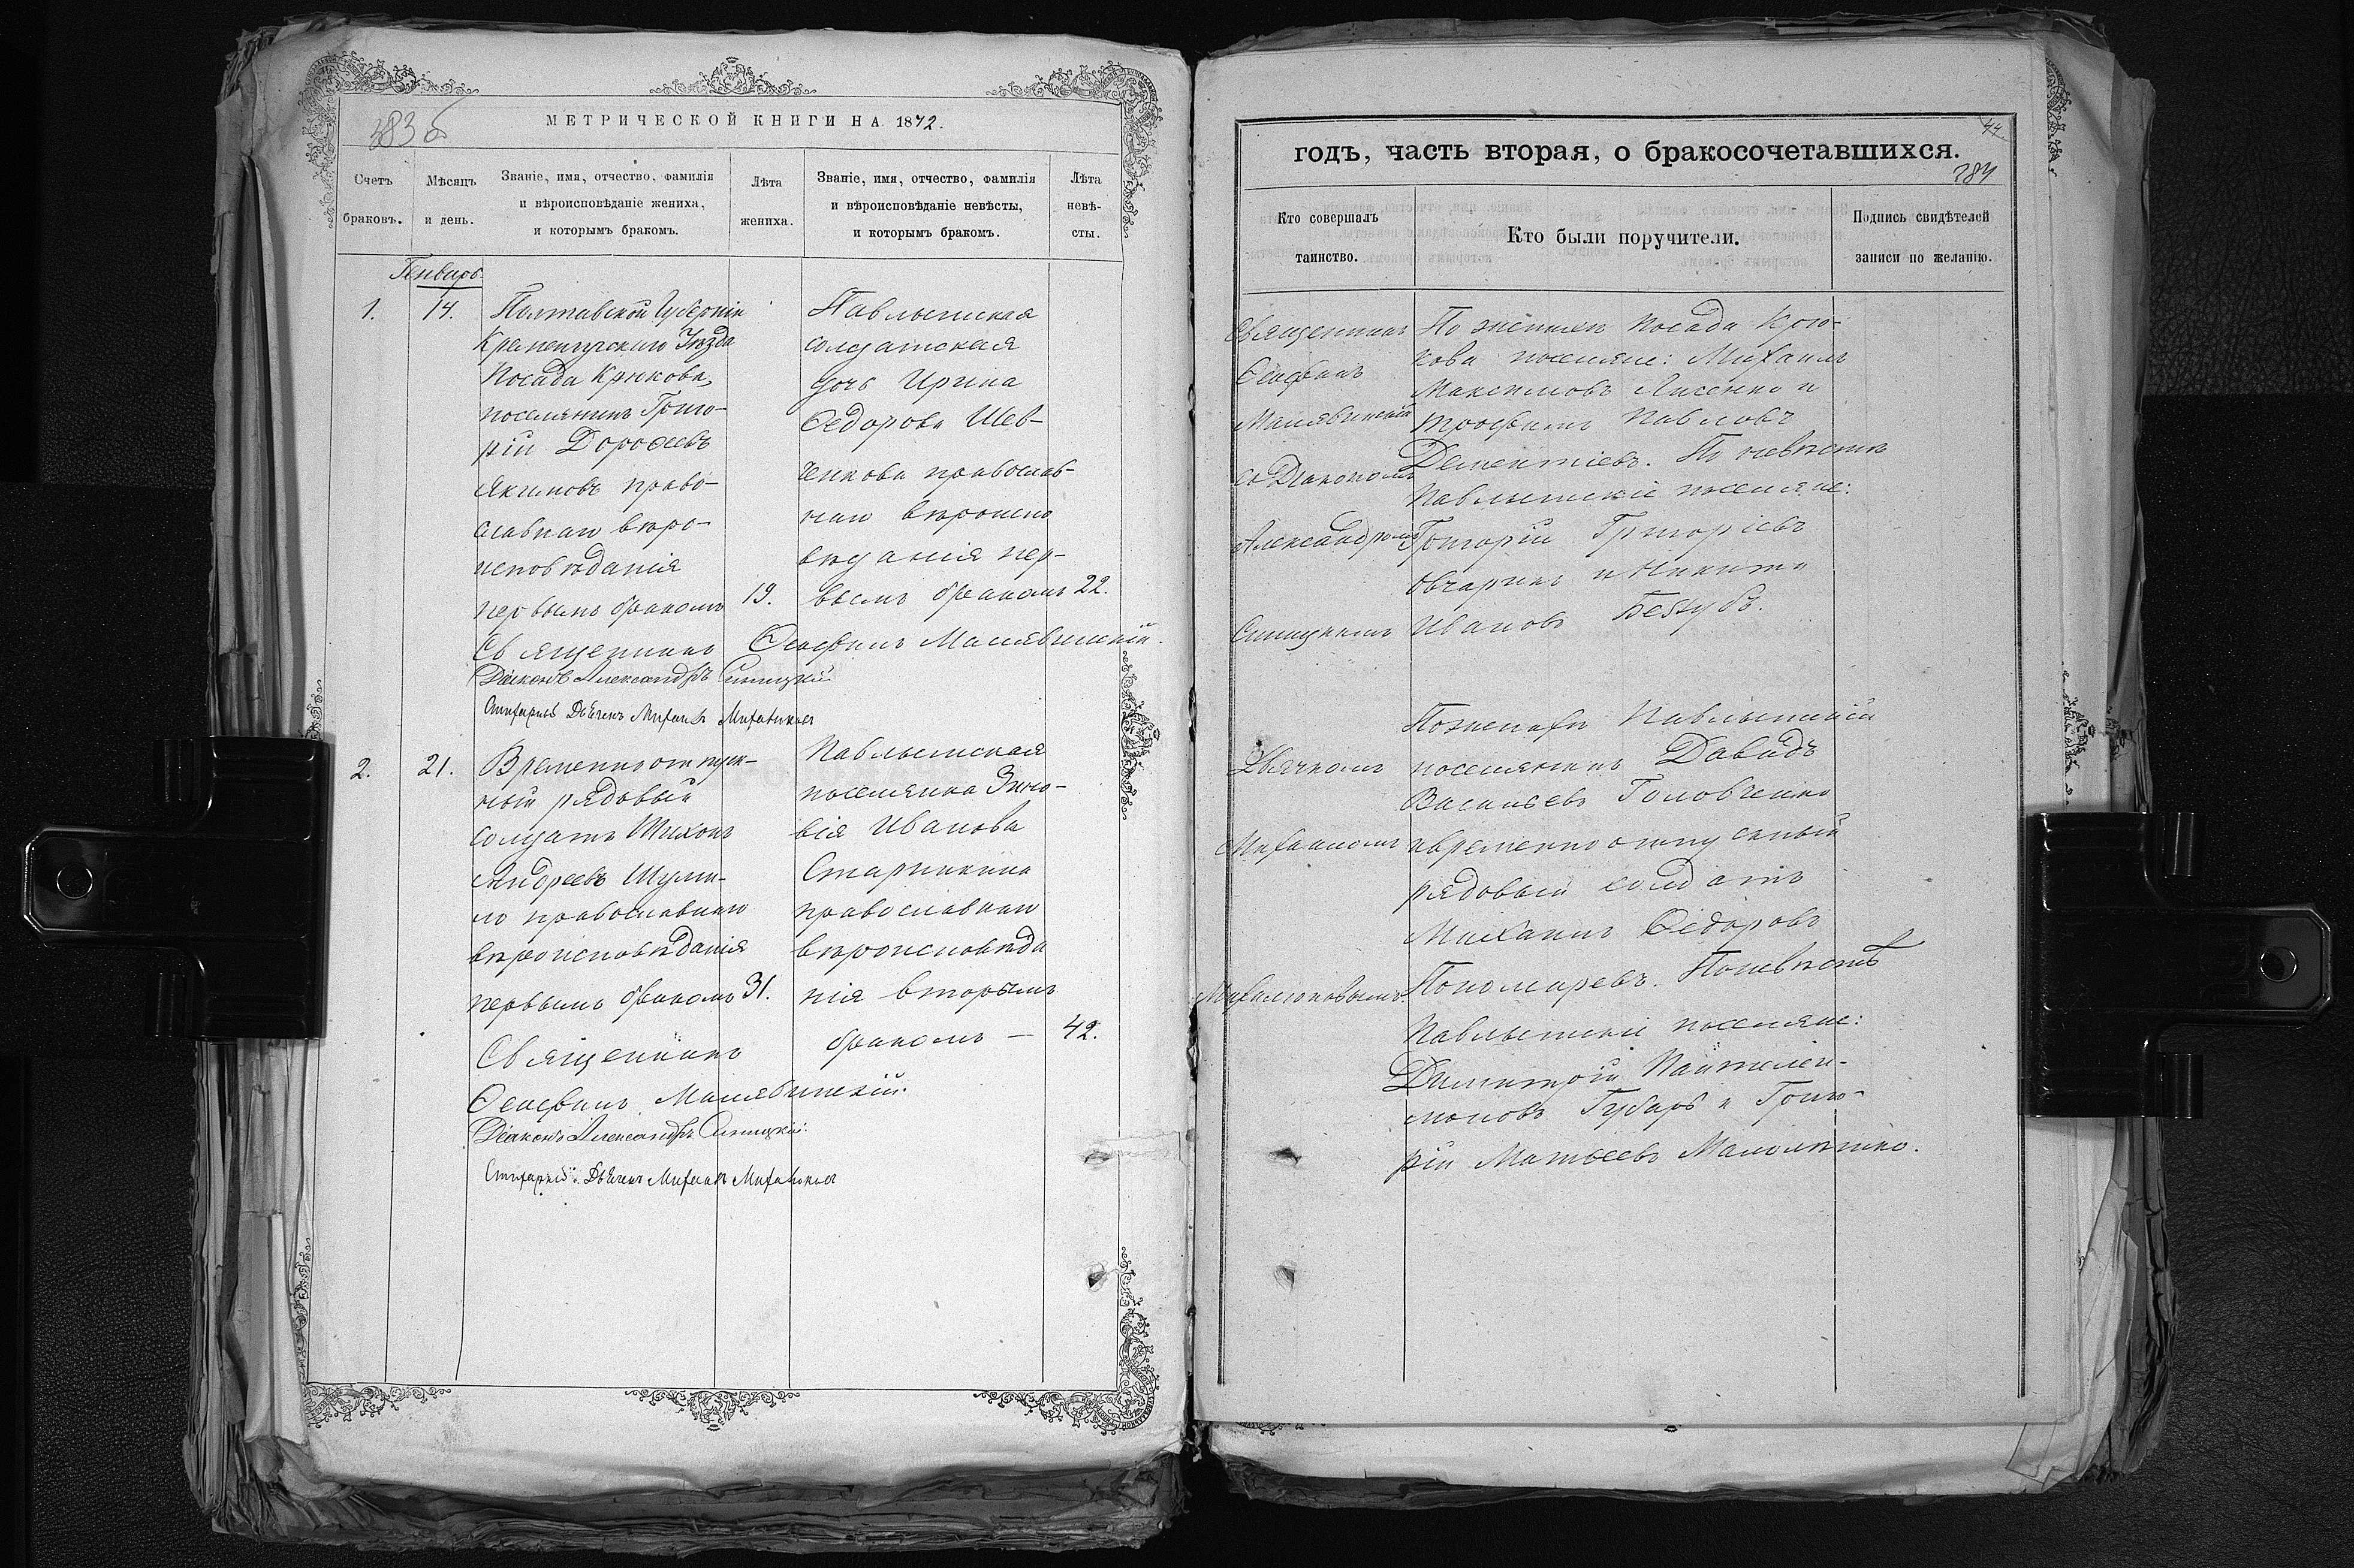 383 б
МЕТРИЧЕСКОЙ КНИГИ НА 1872.
Счетъ браковъ.
Мѣсяцъ и день.
Званіе, имя, отчество, фамилія
и вѣроисповѣданіе жениха,
и которымъ бракомъ.
Лѣта жениха.
Званіе, имя, отчество, фамилія
и вѣроисповѣданіе невѣсты,
и которымъ бракомъ.
Лѣта невѣ-
сты.
Генварь
1.
14.
Полтавской Губерніи
Кременчугскаго Уѣзда
Посада Крюкова,
поселянинъ Григо-
рій Дороѳеевъ
Якимовъ право-
славнаго вѣро-
исповѣданія
первымъ бракомъ
19.
Павлышская
солдатская
дочь Ирина
Ѳедорова Шев-
ченкова православ-
наго вѣроиспо
вѣданія пер-
вымъ бракомъ
22.
Священникъ Ѳеофилъ Малявинскій.
Діаконъ Александръ Синицкій
Стихарный Дьячекъ Михаилъ
2.
21.
Временноотпуск-
ный рядовый
солдатъ Тихонъ
Андреевъ Шули-
ло православнаго
вѣроисповѣданія
первымъ бракомъ
31.
Павлышская
поселянка Зино-
вія Иванова
Старикина
православнаго
вѣроисповѣда
нія вторымъ
бракомъ —
42.
Священникъ
Ѳеофилъ Малявинскій.
Діаконъ Александръ Синицкій.
Стихарный Дьячекъ Михаилъ
годъ, часть вторая, о бракосочетавшихся.
44.
384
Кто совершалъ
таинство.
Кто были поручители.
Подпись свидѣтелей
записи по желанію.
Священникъ
Ѳеофилъ
Малявинскій
съ Діакономъ
Александромъ
Синицкимъ
По женихѣ посада Крю-
кова поселяне: Михаилъ
Максимовъ Лисенко и
Трофимъ Павловъ
Дементіевъ. По невѣстѣ
Павлышскіе поселяне:
Григорій Григоріевъ
Овчаренко и Никита
Ивановъ Беззубъ.
Дьячкомъ
Михаиломъ
По женихѣ Павлышскій
поселянинъ Давидъ
Васильевъ Головченко
и временноотпускный
рядовый солдатъ
Михаилъ Ѳедоровъ
Пономаревъ. По невѣстѣ
Павлышскіе поселяне:
Димитрій Пантелеи-
моновъ Губарь и Григо-
рій Матвеевъ Маломѣтко.